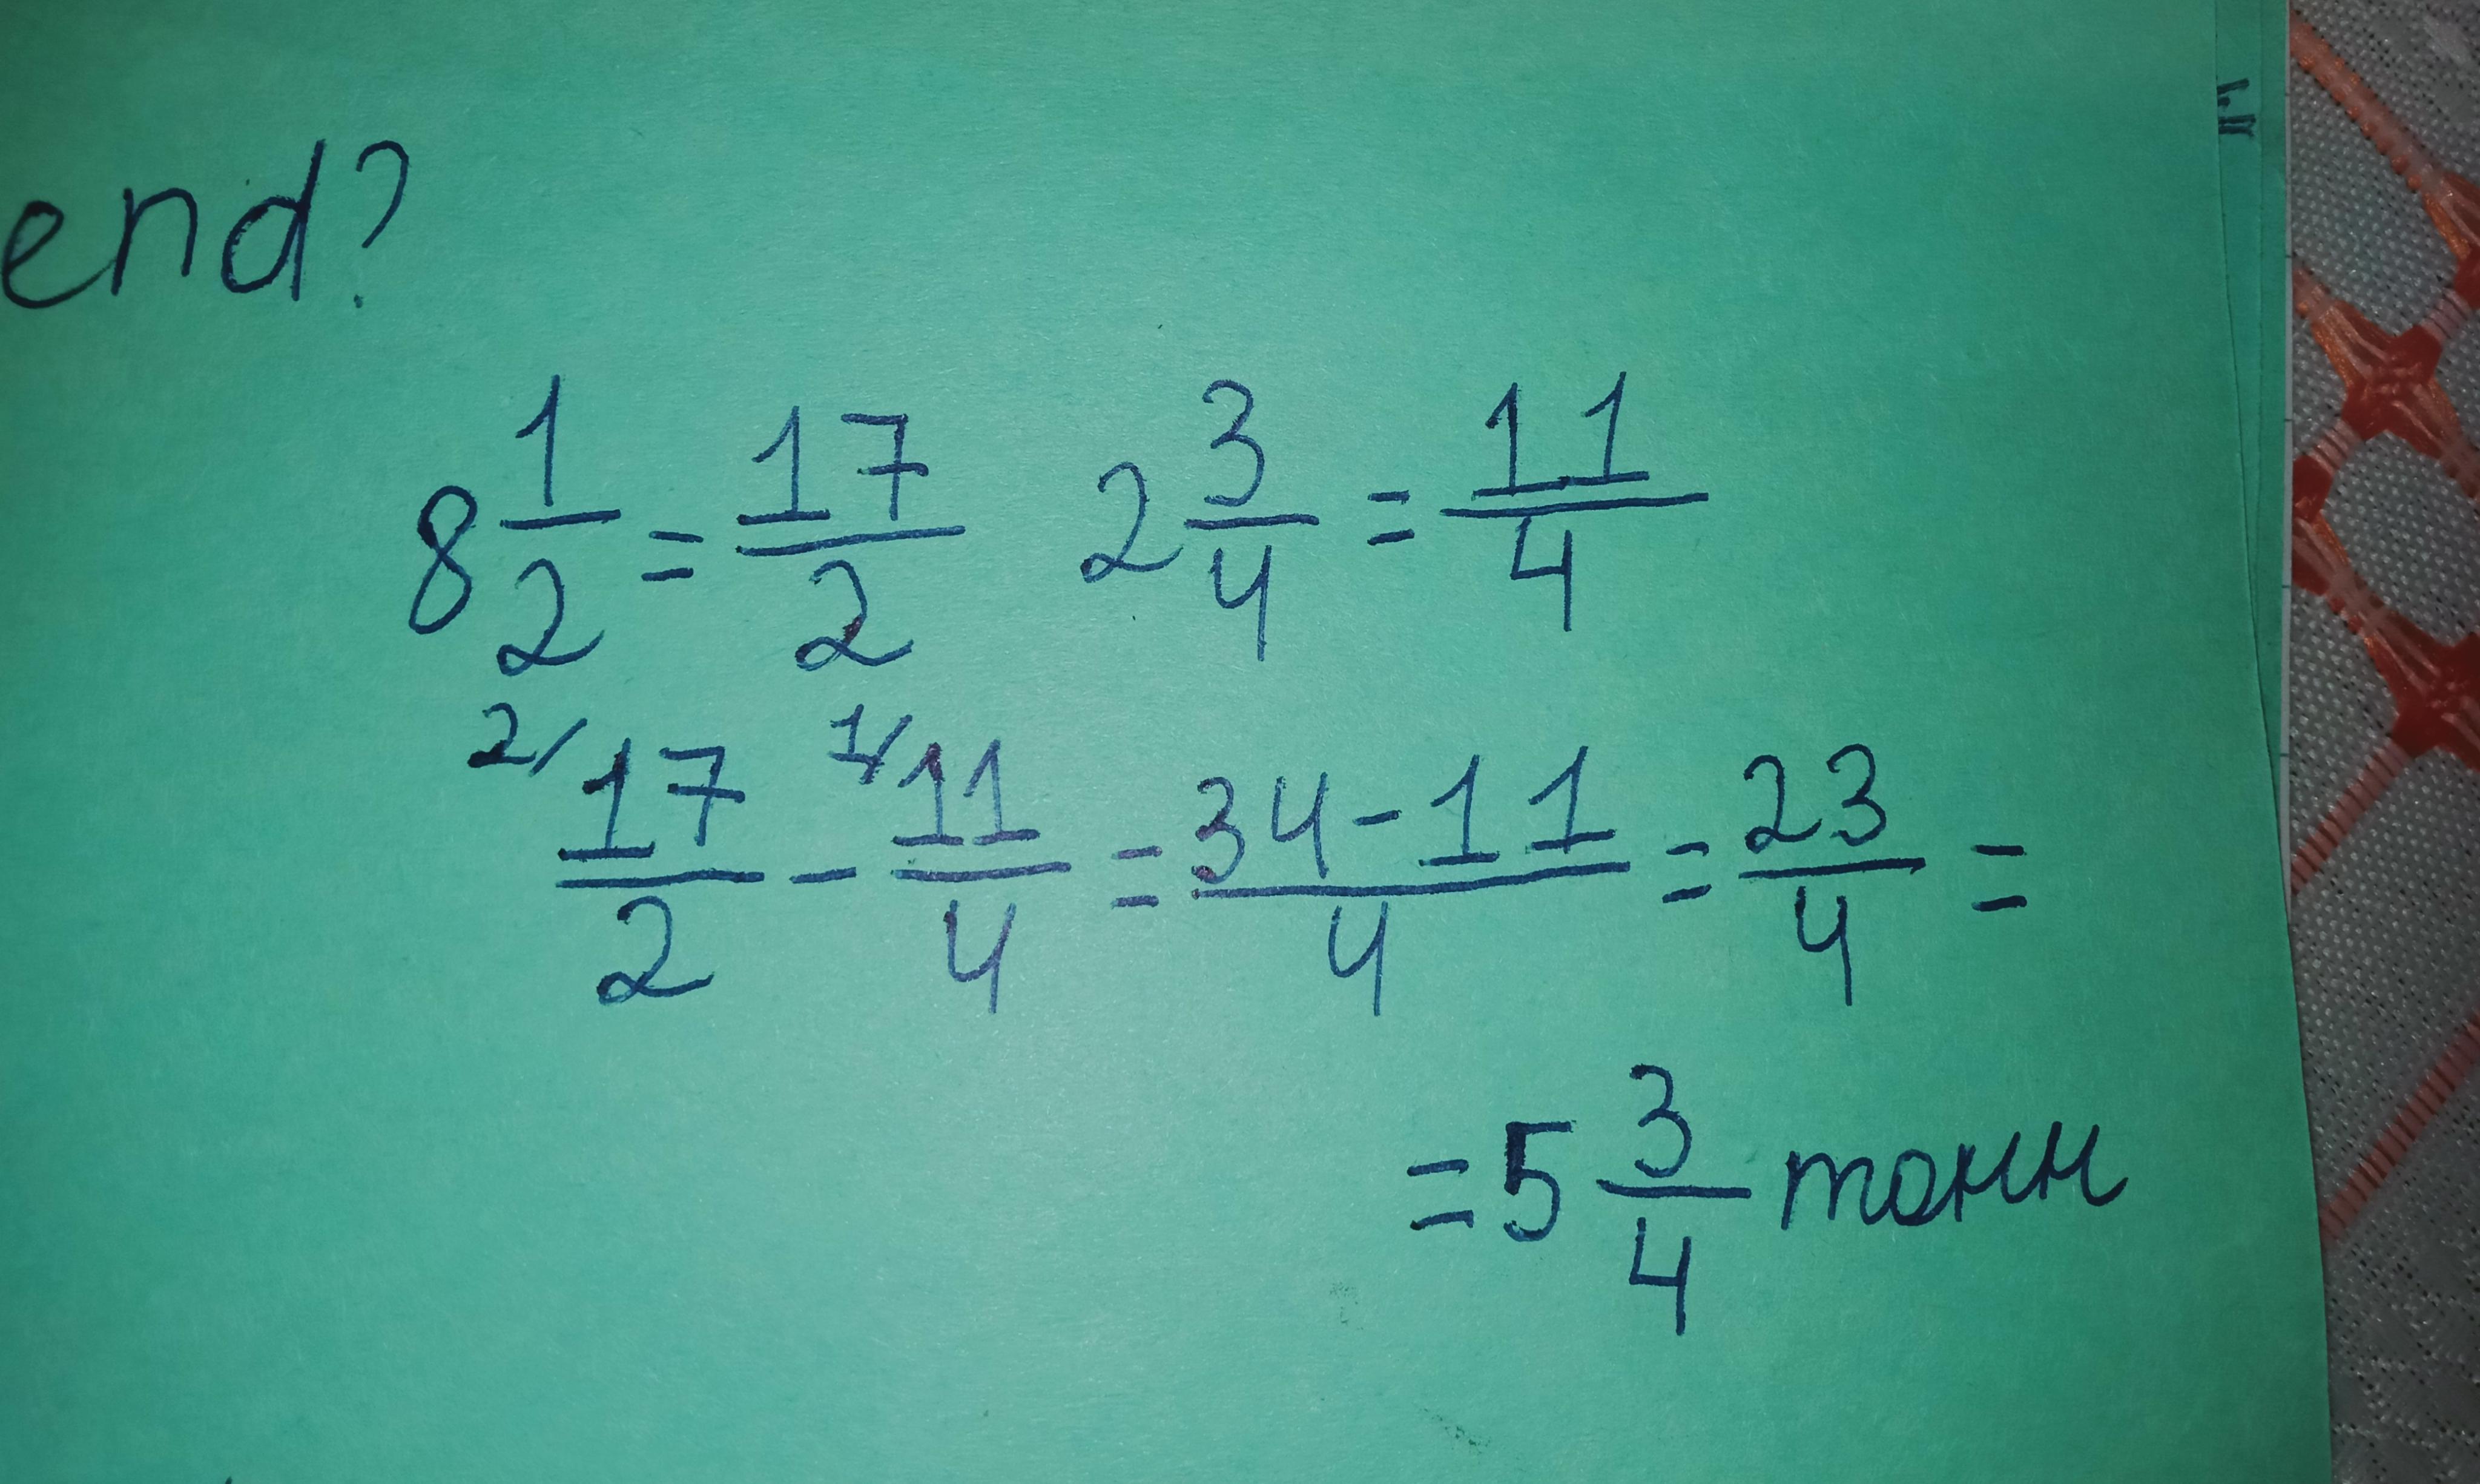 end?
8 1/2 = 17/2 2 3/4 = 11/4
2/ 17/2 - 1/ 11/4 = 34-11/4 = 23/4 =
= 5 3/4 тонн